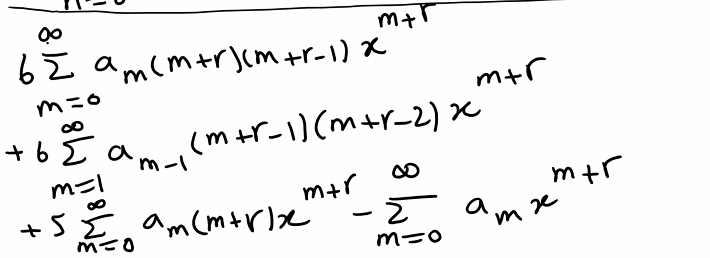 6 ∞Σm=0 a_m (m+r)(m+r-1) x^{m+r}
+ 6 ∞Σm=1 a_{m-1} (m+r-1)(m+r-2) x^{m+r}
+ 5 ∞Σm=0 a_m (m+r) x^{m+r} - ∞Σm=0 a_m x^{m+r}